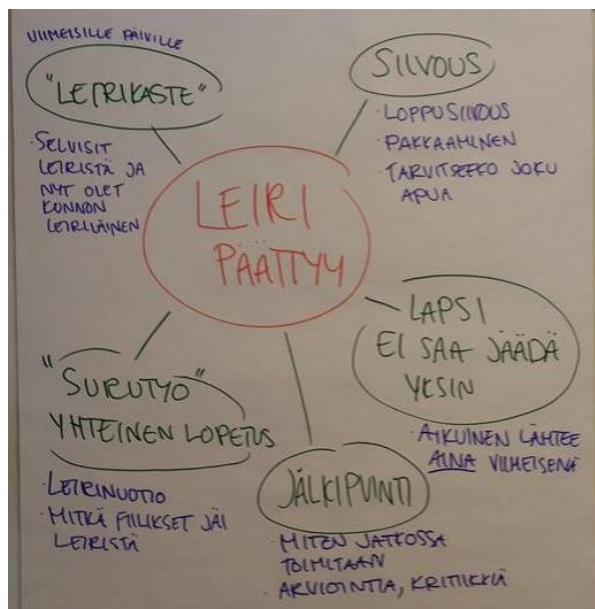 VIIMEISILLE PÄIVILLE
"LEIRIKASTE"
·SELVISIT
LEIRISTÄ JA
NYT OLET
KUNNON
LEIRILÄINEN
SIIVOUS
·LOPPUSIIVOUS
·PAKKAAMINEN
·TARVITSEEKO JOKU
APUA
LEIRI
PÄÄTTYY
LAPSI
EI SAA JÄÄDÄ
YKSIN
·AIKUINEN LÄHTEE
AINA VIIMEISENÄ
"SURUTYÖ"
YHTEINEN LOPETUS
·LEIRINUOTIO
·MITKÄ FIILIKSET JÄI
LEIRISTÄ
JÄLKIPUINTI
·MITEN JATKOSSA
TOIMITAAN
ARVIOINTIA, KRITIIKKIÄ